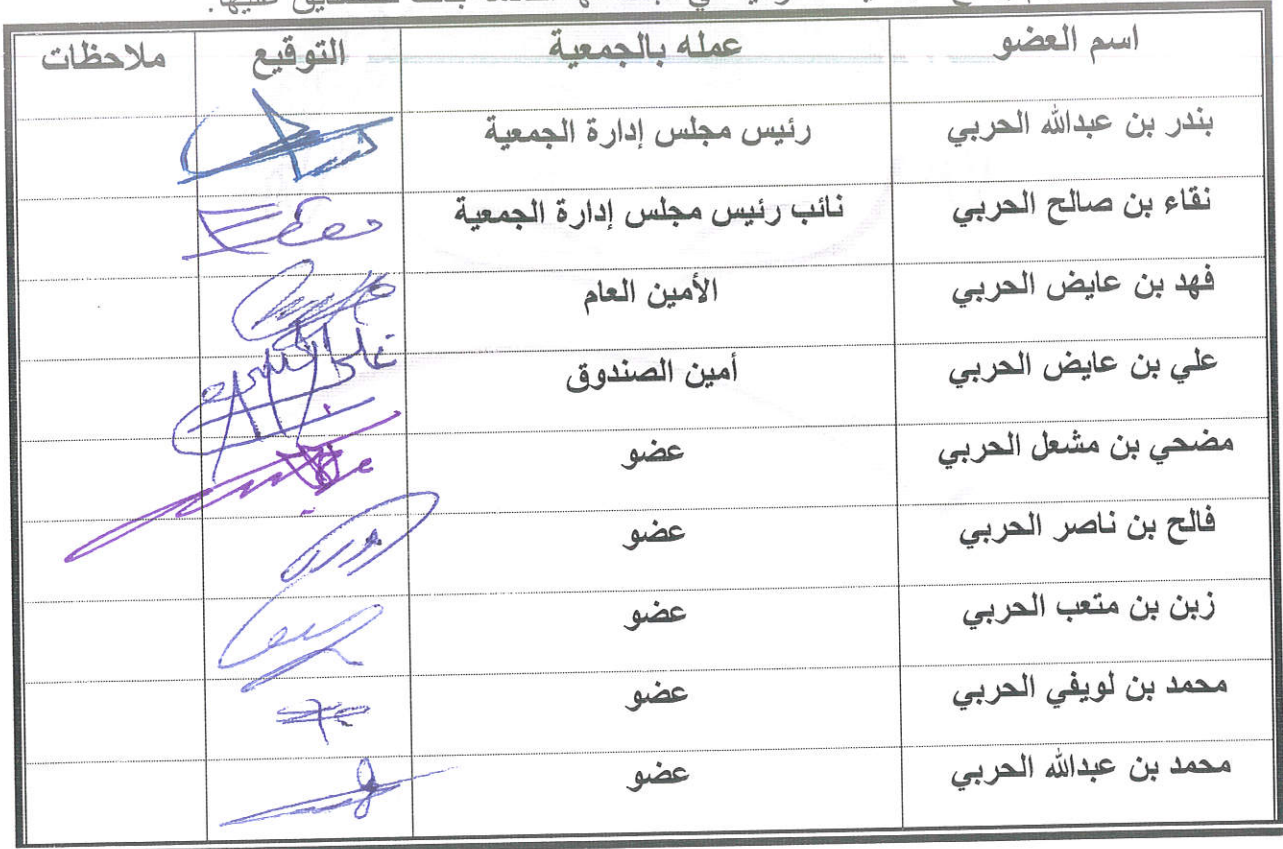 اسم العضو عمله بالجمعية التوقيع ملاحظات
بندر بن عبدالله الحربي رئيس مجلس إدارة الجمعية
نقاء بن صالح الحربي نائب رئيس مجلس إدارة الجمعية
فهد بن عايض الحربي الأمين العام
علي بن عايض الحربي أمين الصندوق
مضحي بن مشعل الحربي عضو
فالح بن ناصر الحربي عضو
زبن بن متعب الحربي عضو
محمد بن لويفي الحربي عضو
محمد بن عبدالله الحربي عضو